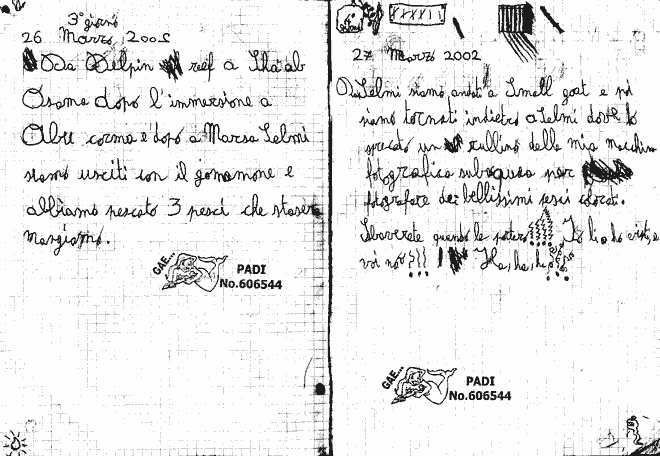 3° giorno
26 Marzo, 2002
Da Dolpin reef a Sha'ab
Osama dopo l'immersione a
Abu corma e dopo a Marsa Selmi
siamo usciti con il gommone e
abbiamo pescato 3 pesci che stasera
mangiamo.
GAE...
PADI
No.606544
27 Marzo 2002
Selmi siamo andati a Small goat e poi
siamo tornati indietro a Selmi dove ho
sprecato un rullino della mia macchina
fotografica subaquea per
fotografare dei bellissimi pesci colorati.
Sbaverete quando le
Io li ho visti, e
voi no!!! Ha, ha, ha
GAE...
PADI
No.606544